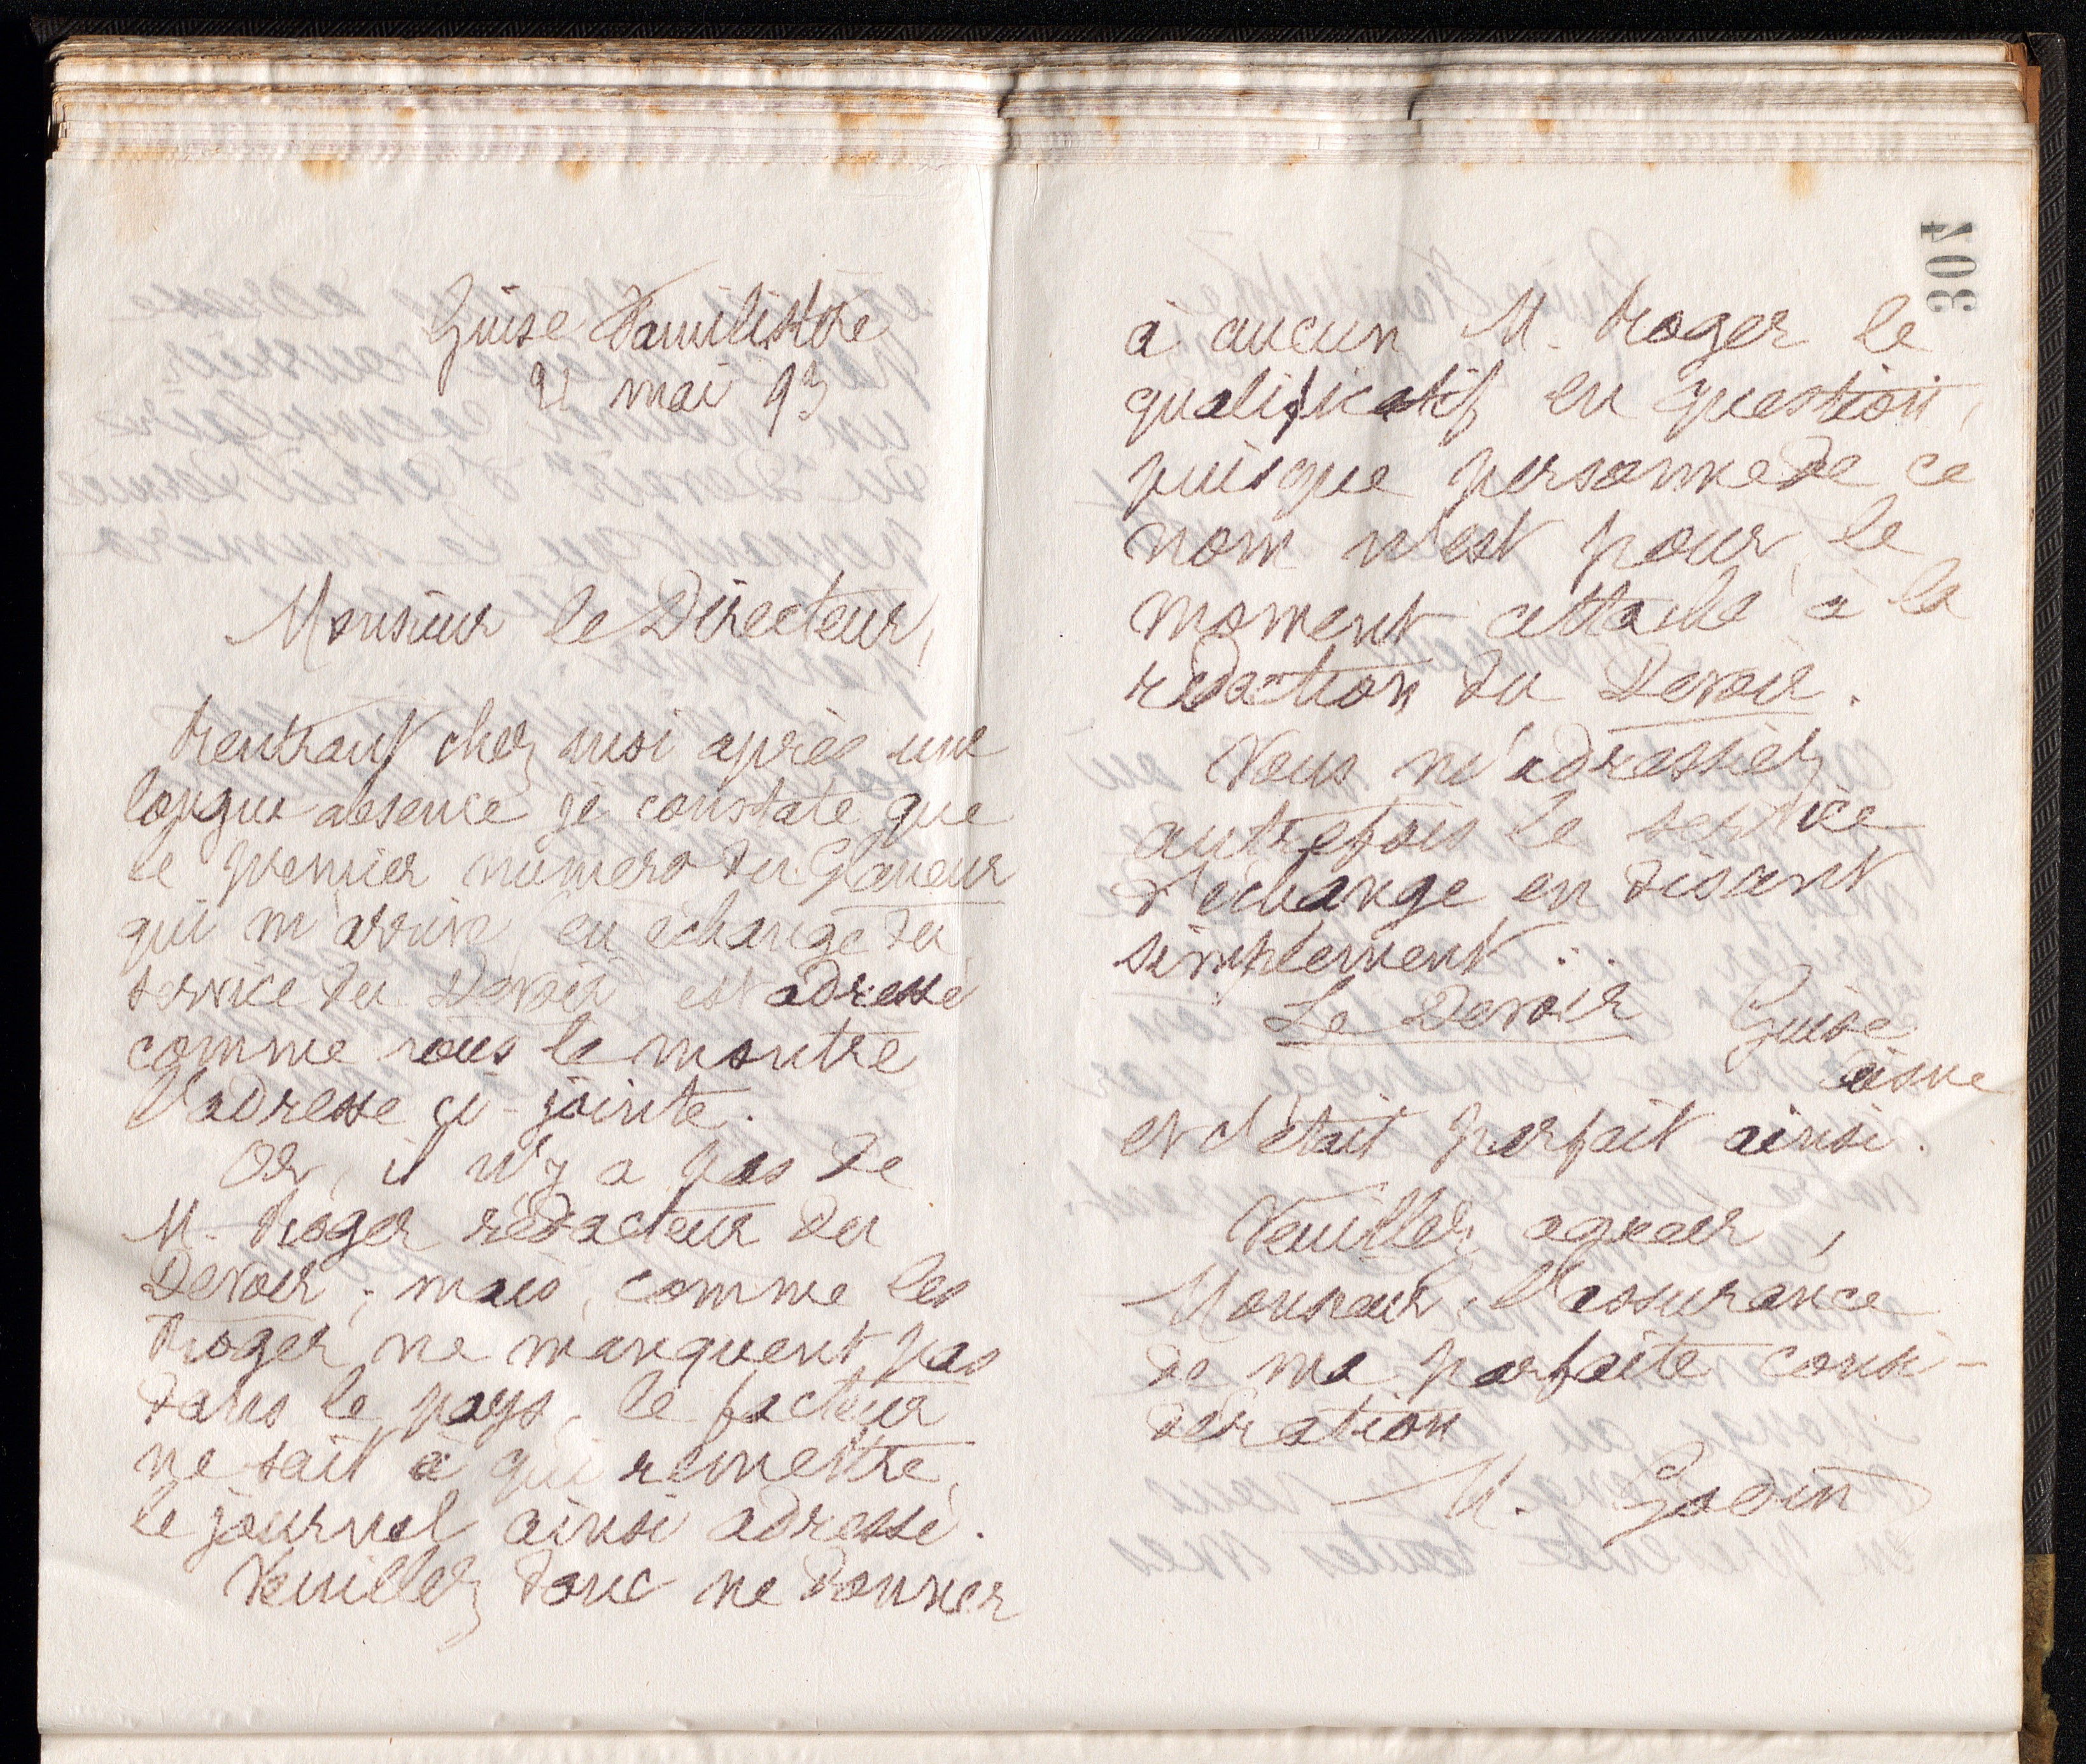 Guise Familistère
21 mai 93
Monsieur le Directeur,
Rentrant chez moi après une
longue absence je constate que
le premier numéro du Glaneur
qui m'arrive en échange du
service du Devoir est adressé
comme vous le montre
l'adresse ci-jointe.
Or, il n'y a pas de
M. Roger rédacteur du
Devoir ; mais, comme les
Roger ne manquent pas
dans le pays, le facteur
ne sait à qui remettre
le journal ainsi adressé.
Veuillez donc ne donner
304
à aucun M. Roger le
qualificatif en question,
puisque personne de ce
nom n'est pour le
moment attaché à la
rédaction du Devoir.
Vous m'adressiez
autrefois le service
d'échange en disant
simplement :
Le Devoir Guise
aisne
et c'était parfait ainsi.
Veuillez agréer,
Monsieur, l'assurance
de ma parfaite consi-
dération
M. Godin